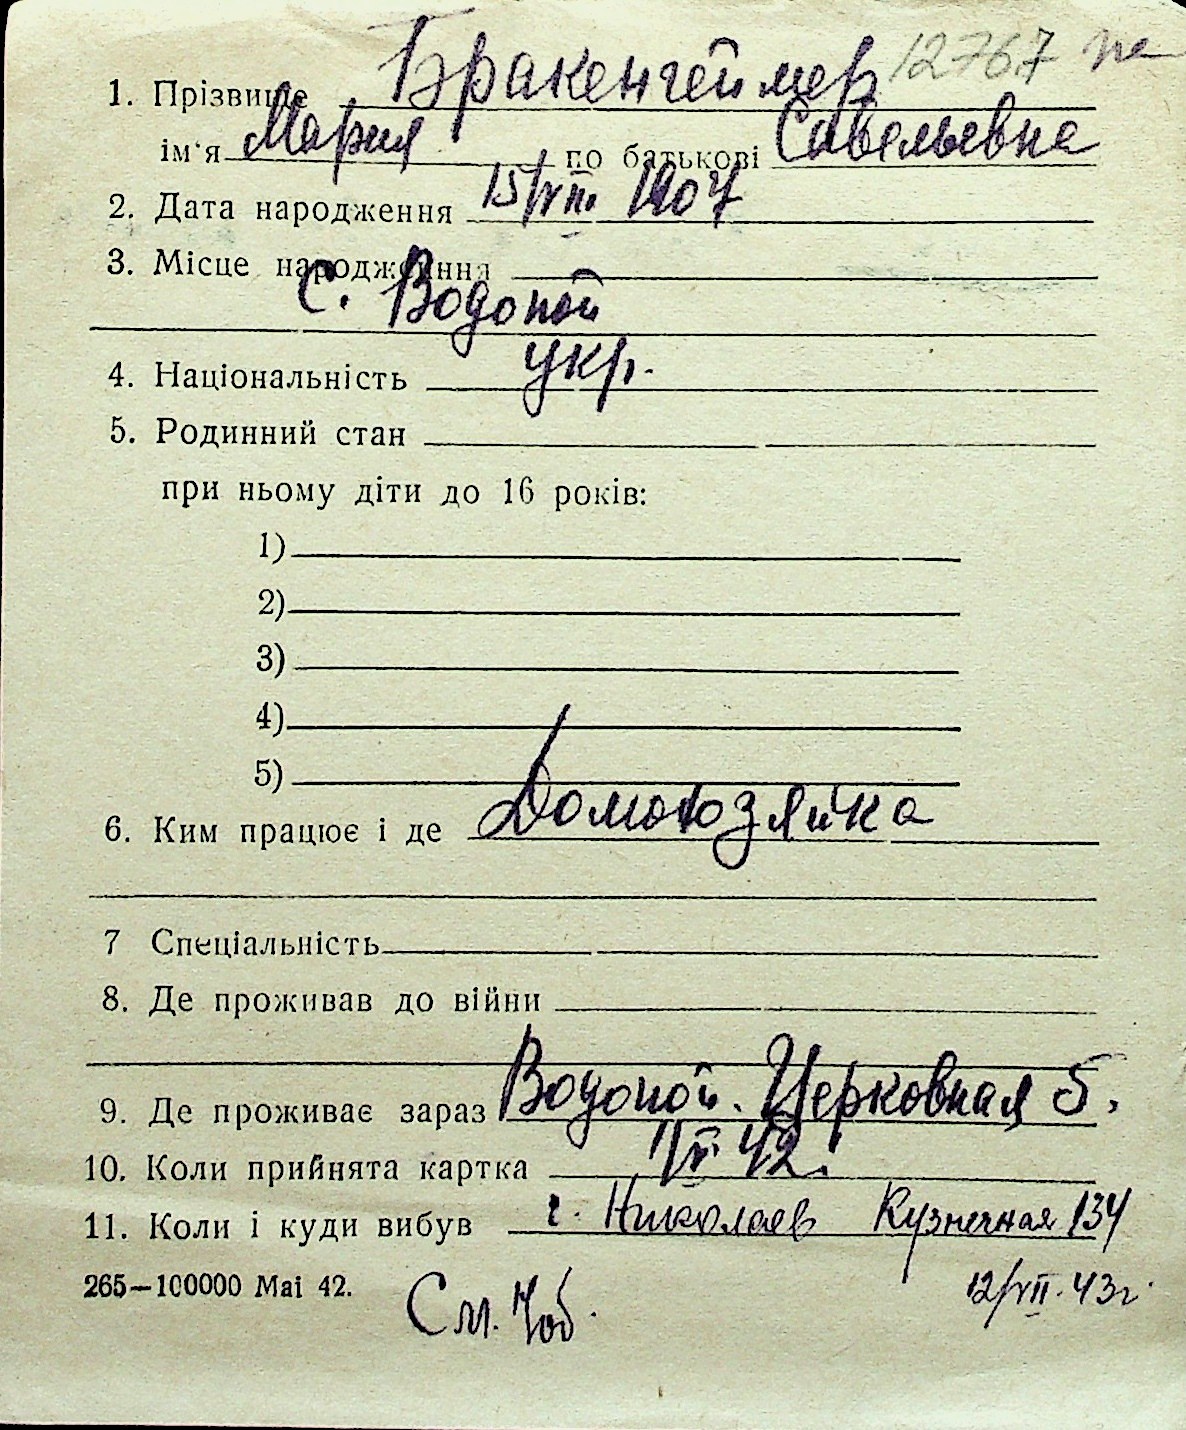 1. Прізвище Бракенгеймер 12767
ім'я Мария по батькові Савельевна
2. Дата народження 15/VII. 1907
3. Місце народження
с. Водопой
4. Національність укр.
5. Родинний стан
при ньому діти до 16 років:
1)
2)
3)
4)
5)
6. Ким працює і де Домохозяйка
7 Спеціальність
8. Де проживав до війни
9. Де проживає зараз Водопой. Церковная 5,
10. Коли прийнята картка 42.
11. Коли і куди вибув г. Николаев Кузнечная 134
265—100000 Mai 42. См. 12/VII. 43г.